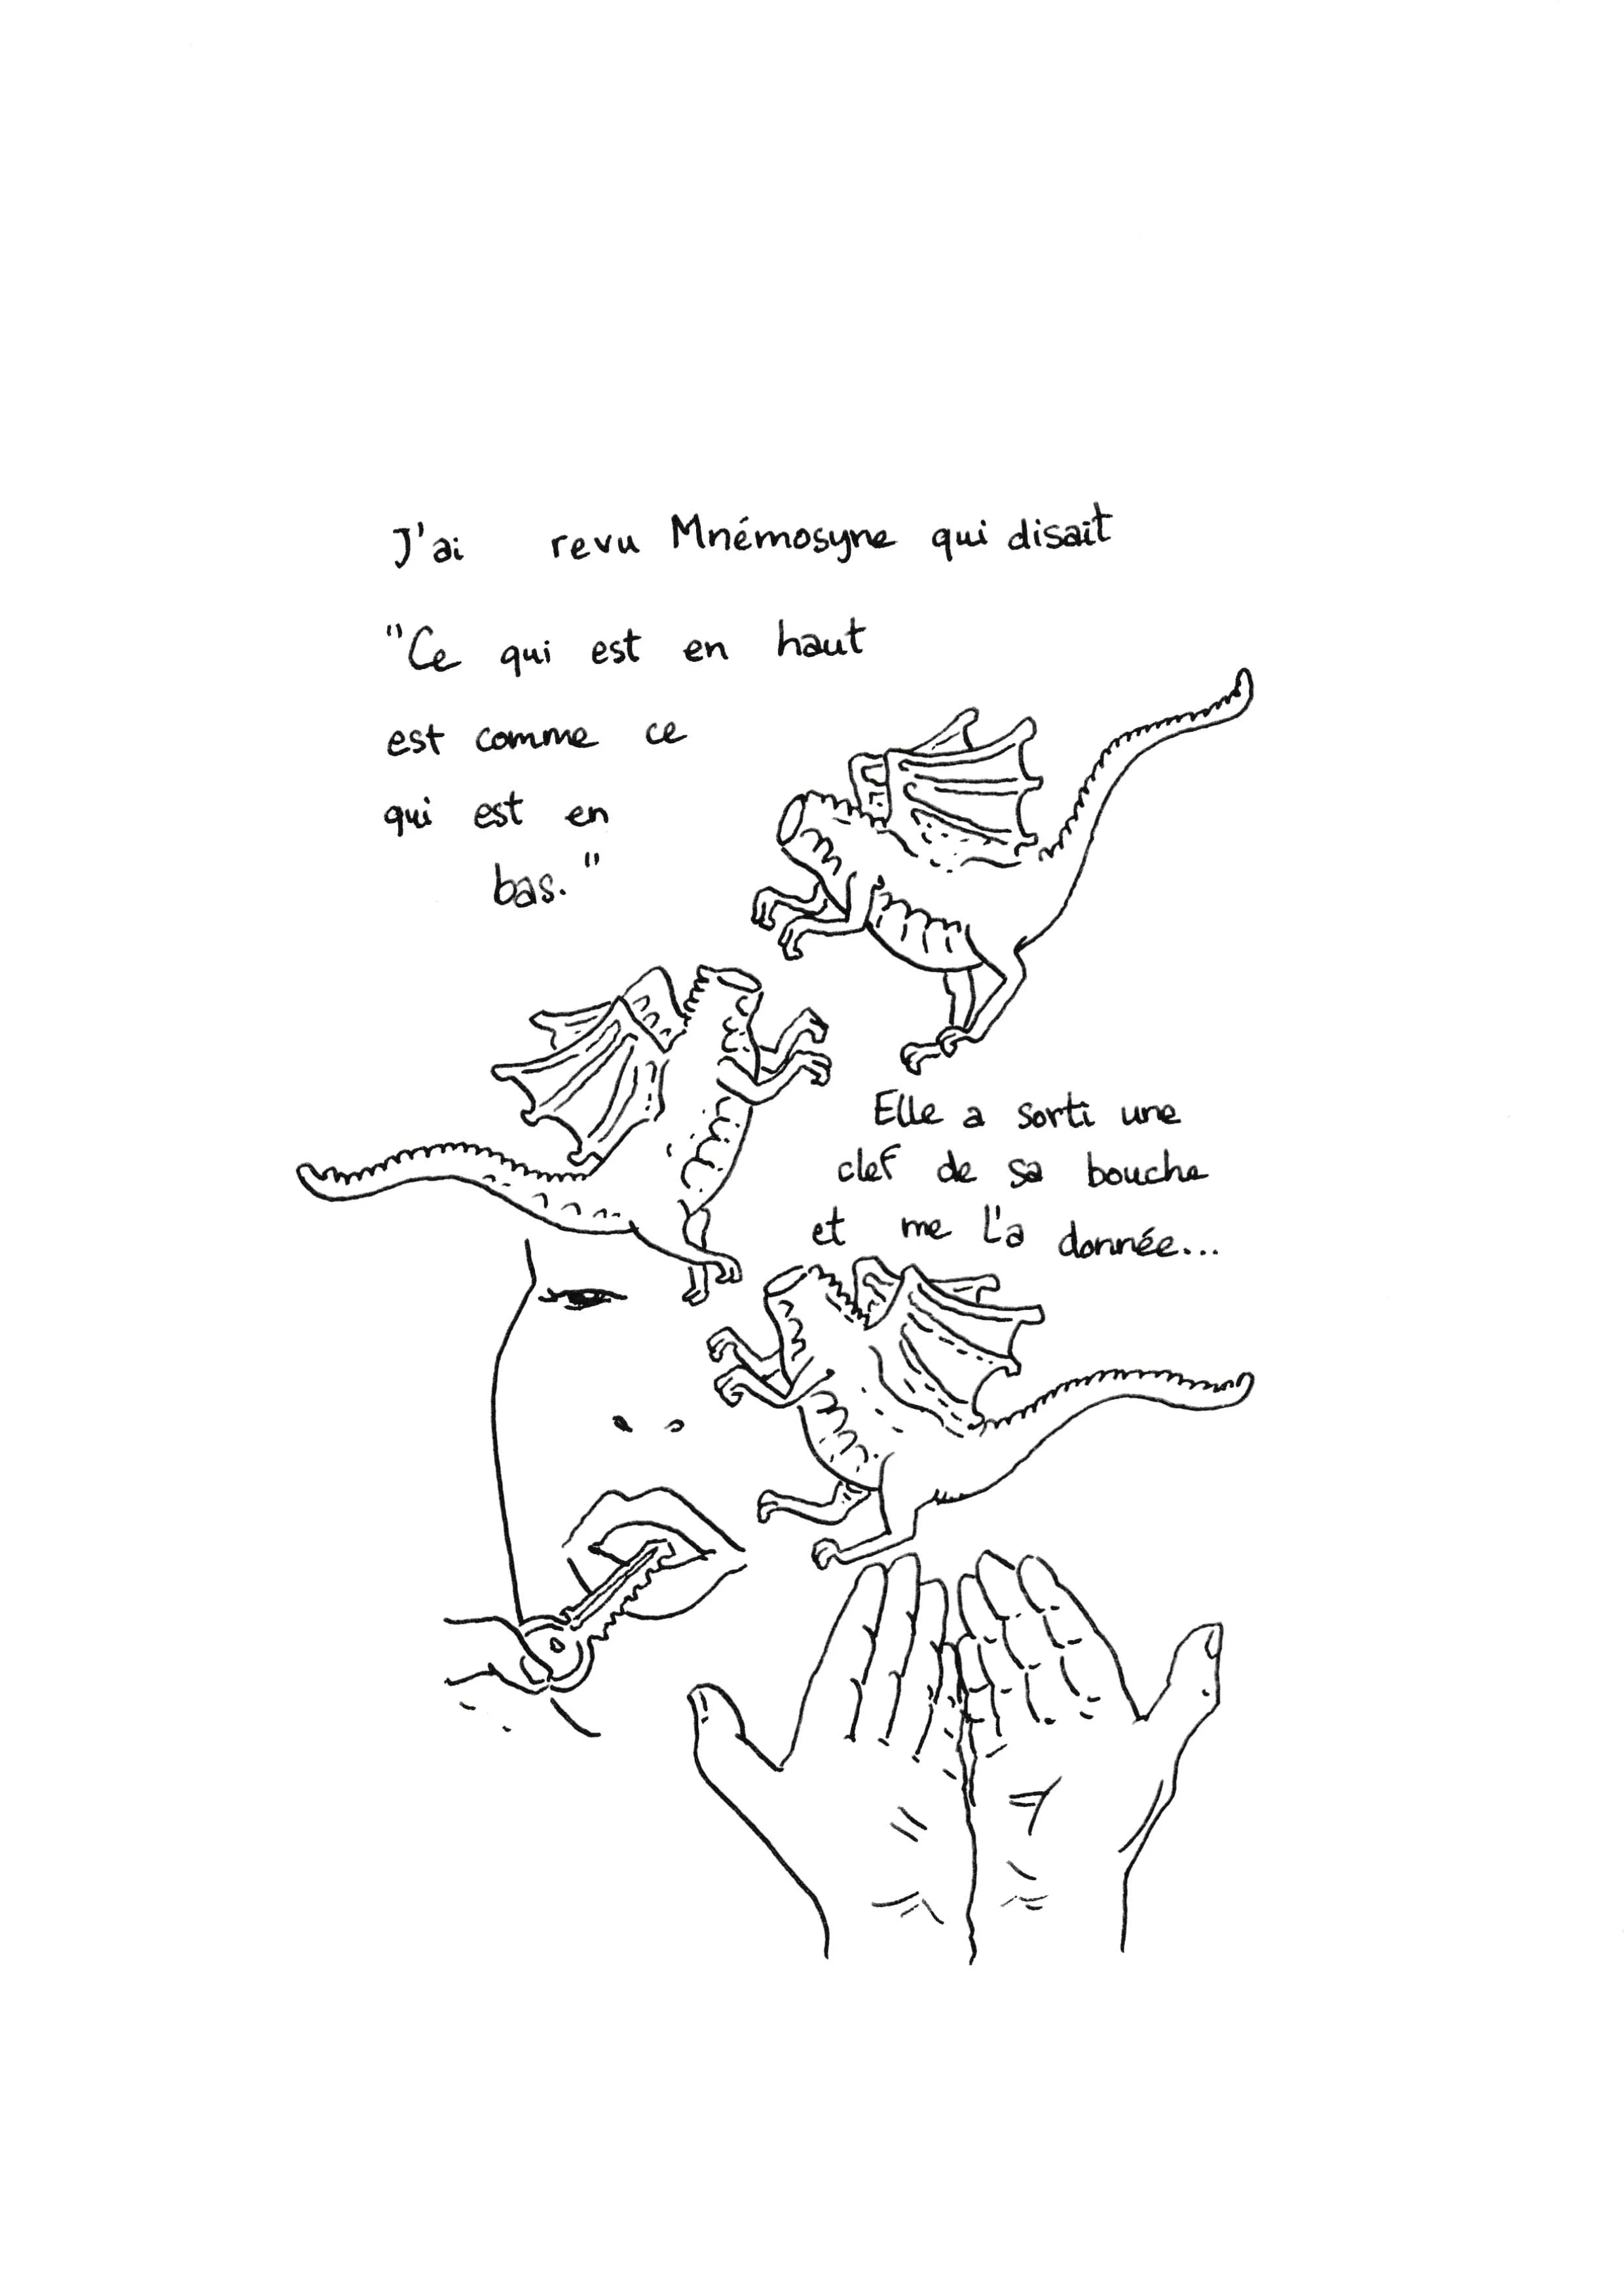 J'ai revu Mnémosyne qui disait
"Ce qui est en haut
est comme ce
qui est en
bas."
Elle a sorti une
clef de sa bouche
et me l'a donnée...